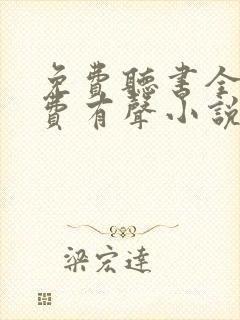 免費聽書全
費有聲小說
梁宏達